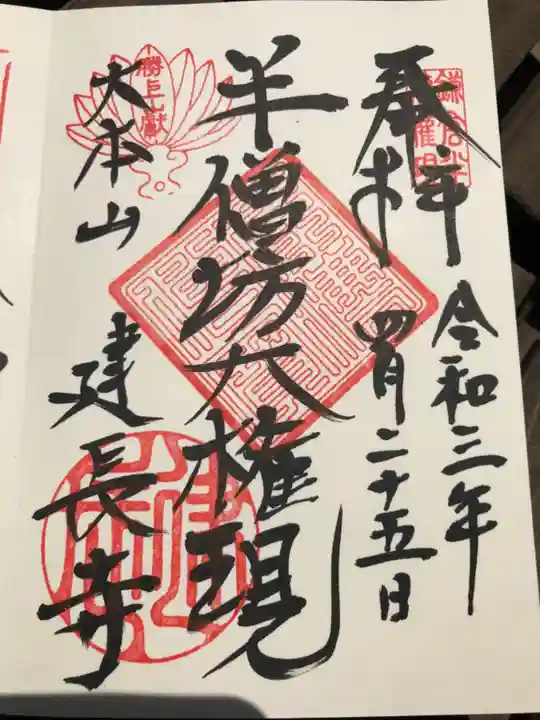 奉拝
令和三年
四月二十五日
半僧坊大権現
勝上山獻
大本山
建長寺